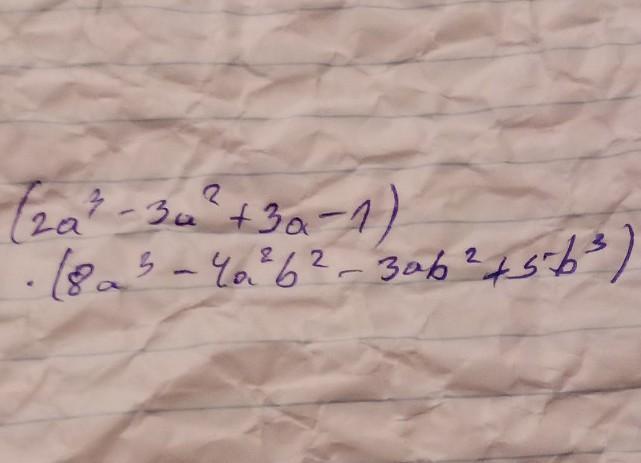 (2a³ - 3a² + 3a - 1)
· (8a³ - 4a²b² - 3ab² + 5b³)